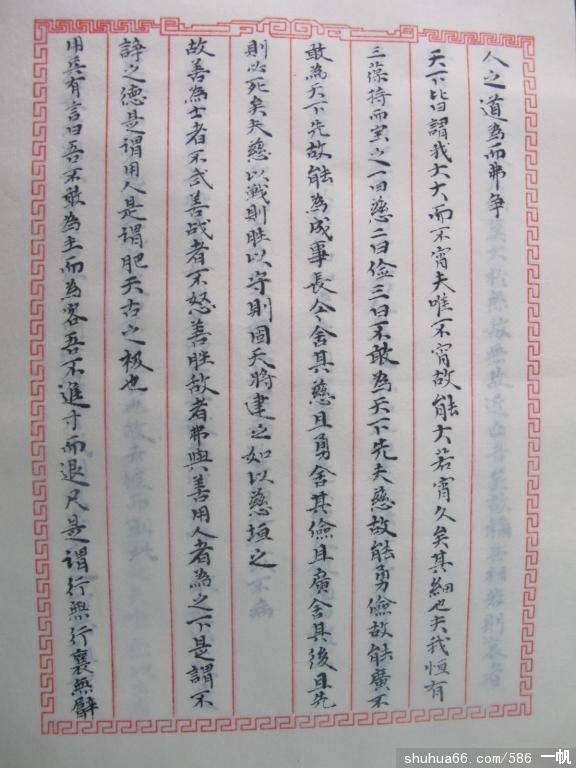 人之道為而弗争
天下皆曰謂我大大而不宵夫唯不宵故能大若宵久矣其細也夫我恒有
三葆持而宝之一曰慈二曰儉三曰不敢為天下先夫慈故能勇儉故能廣不
敢為天下先故能為成事長今舍其慈且勇舍其儉且廣舍其後且先
則必死矣夫慈以戰則胜以守則固天將建之如以慈垣之
故善為士者不武善战者不怒善胜敌者弗與善用人者為之下是謂不
諍之德是谓用人是谓肥天古之极也
用兵有言曰吾不敢為主而為客吾不進寸而退尺是謂行無行襄無臂
shuhua66.com/586 一帆